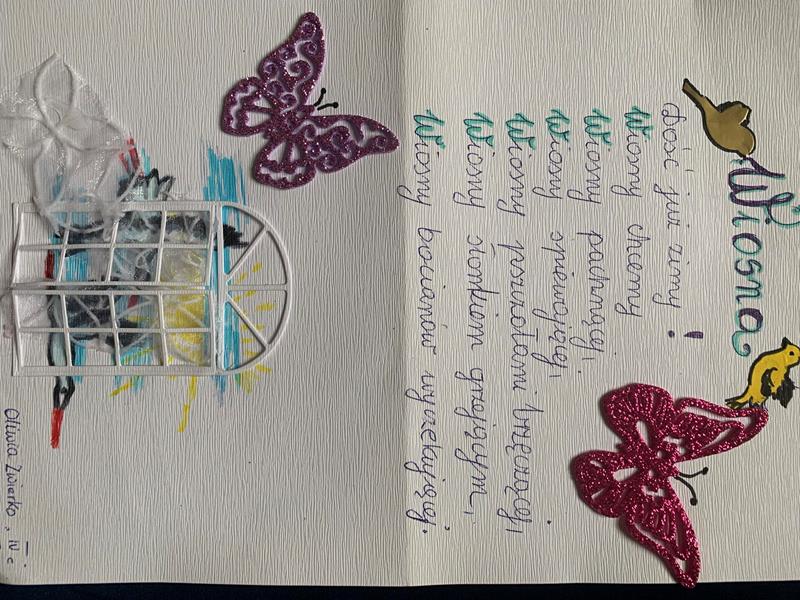 Wiosna
dość już zimy!
Wiosny chcemy
Wiosny pachnącej,
Wiosny śpiewającej,
Wiosny pszczołami brzęczącej,
Wiosny słonkiem grzejącym,
Wiosny bocianów wyczekującej.
Oliwia Żwierko, IV c